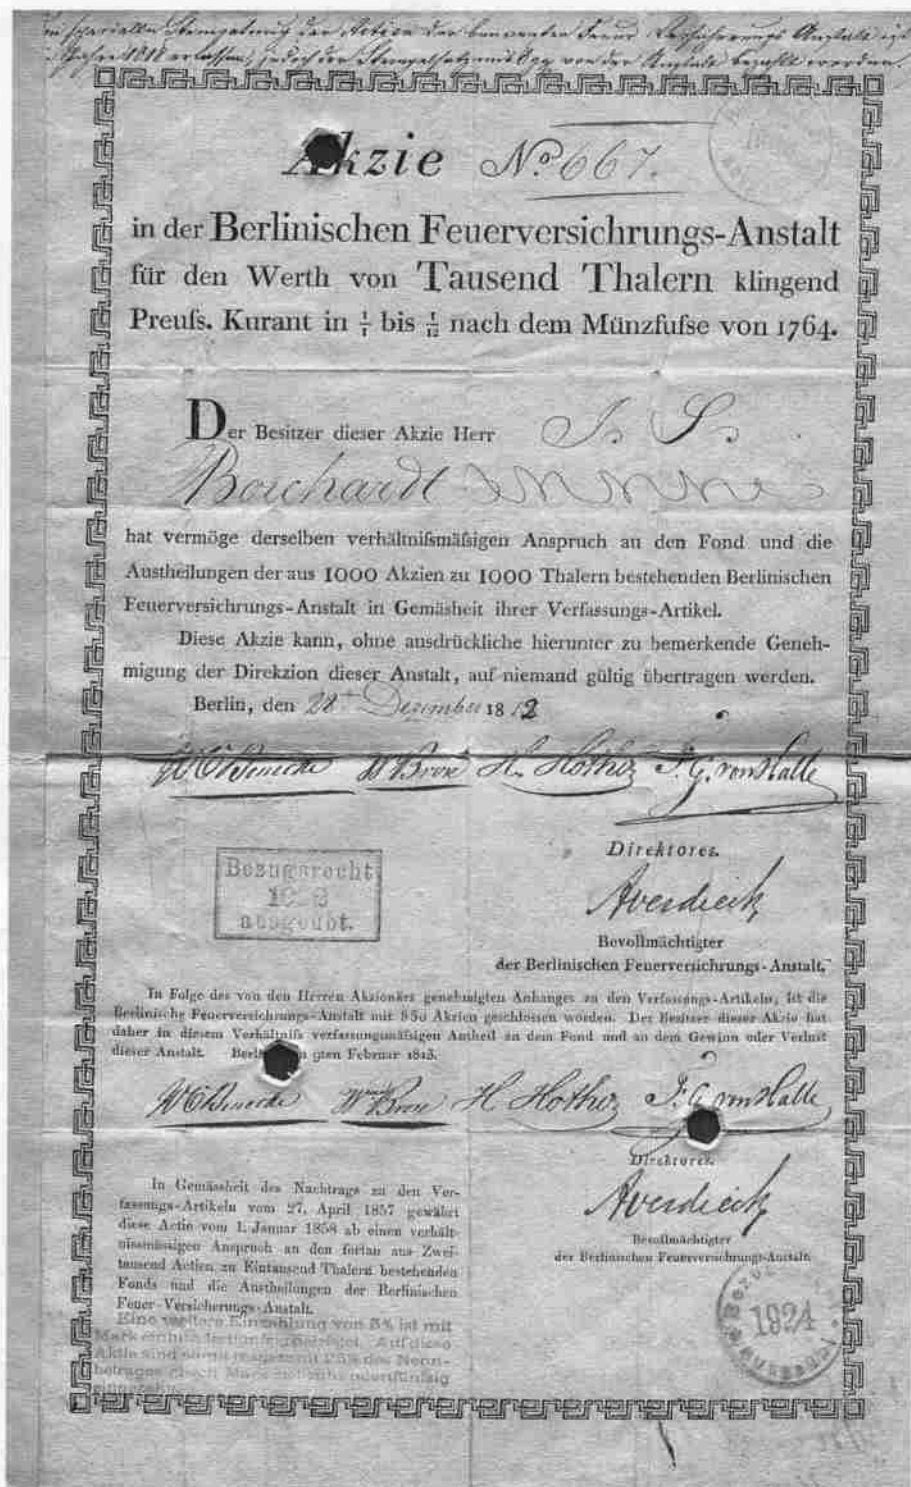 der Actien der benannten Feuer Versicherungs Anstalt ist
Akzie No 667.
in der Berlinischen Feuerversichrungs-Anstalt
für den Werth von Tausend Thalern klingend
Preuſs. Kurant in 1/1 bis 1/12 nach dem Münzfuſse von 1764.
Der Besitzer dieser Akzie Herr J. S.
Borchardt
hat vermöge derselben verhältniſsmäſsigen Anspruch an den Fond und die
Austheilungen der aus 1000 Akzien zu 1000 Thalern bestehenden Berlinischen
Feuerversichrungs-Anstalt in Gemäsheit ihrer Verfassungs-Artikel.
Diese Akzie kann, ohne ausdrückliche hierunter zu bemerkende Geneh-
migung der Direkzion dieser Anstalt, auf niemand gültig übertragen werden.
Berlin, den 28ten Dezember 1812
W C Benecke W Brose H. Hotho J. G. von Halle
Direktores.
Bezugsrecht
ausgeübt.
Averdieck
Bevollmächtigter
der Berlinischen Feuerversichrungs-Anstalt.
In Folge des von den Herren Akzionärs genehmigten Anhanges zu den Verfassungs-Artikeln, ist die
Berlinische Feuerversichrungs-Anstalt mit 850 Akzien geschlossen worden. Der Besitzer dieser Akzie hat
daher in diesem Verhältniſs verfassungsmäſsigen Antheil an dem Fond und an dem Gewinn oder Verlust
dieser Anstalt. Berlin 9ten Februar 1813.
W C Benecke W Brose H Hotho J. G. von Halle
Direktores.
Averdieck
Bevollmächtigter
der Berlinischen Feuerversichrungs-Anstalt.
In Gemässheit des Nachtrags zu den Ver-
fassungs-Artikeln vom 27. April 1857 gewährt
diese Actie vom 1. Januar 1858 ab einen verhält-
nissmässigen Anspruch an den fortan aus Zwei-
tausend Actien zu Eintausend Thalern bestehenden
Fonds und die Austheilungen der Berlinischen
Feuer-Versicherungs-Anstalt.
Eine weitere Einzahlung von 5% ist mit
Mark geleistet. Auf diese
Aktie sind somit insgesamt 25% des Nenn-
betrages
1924